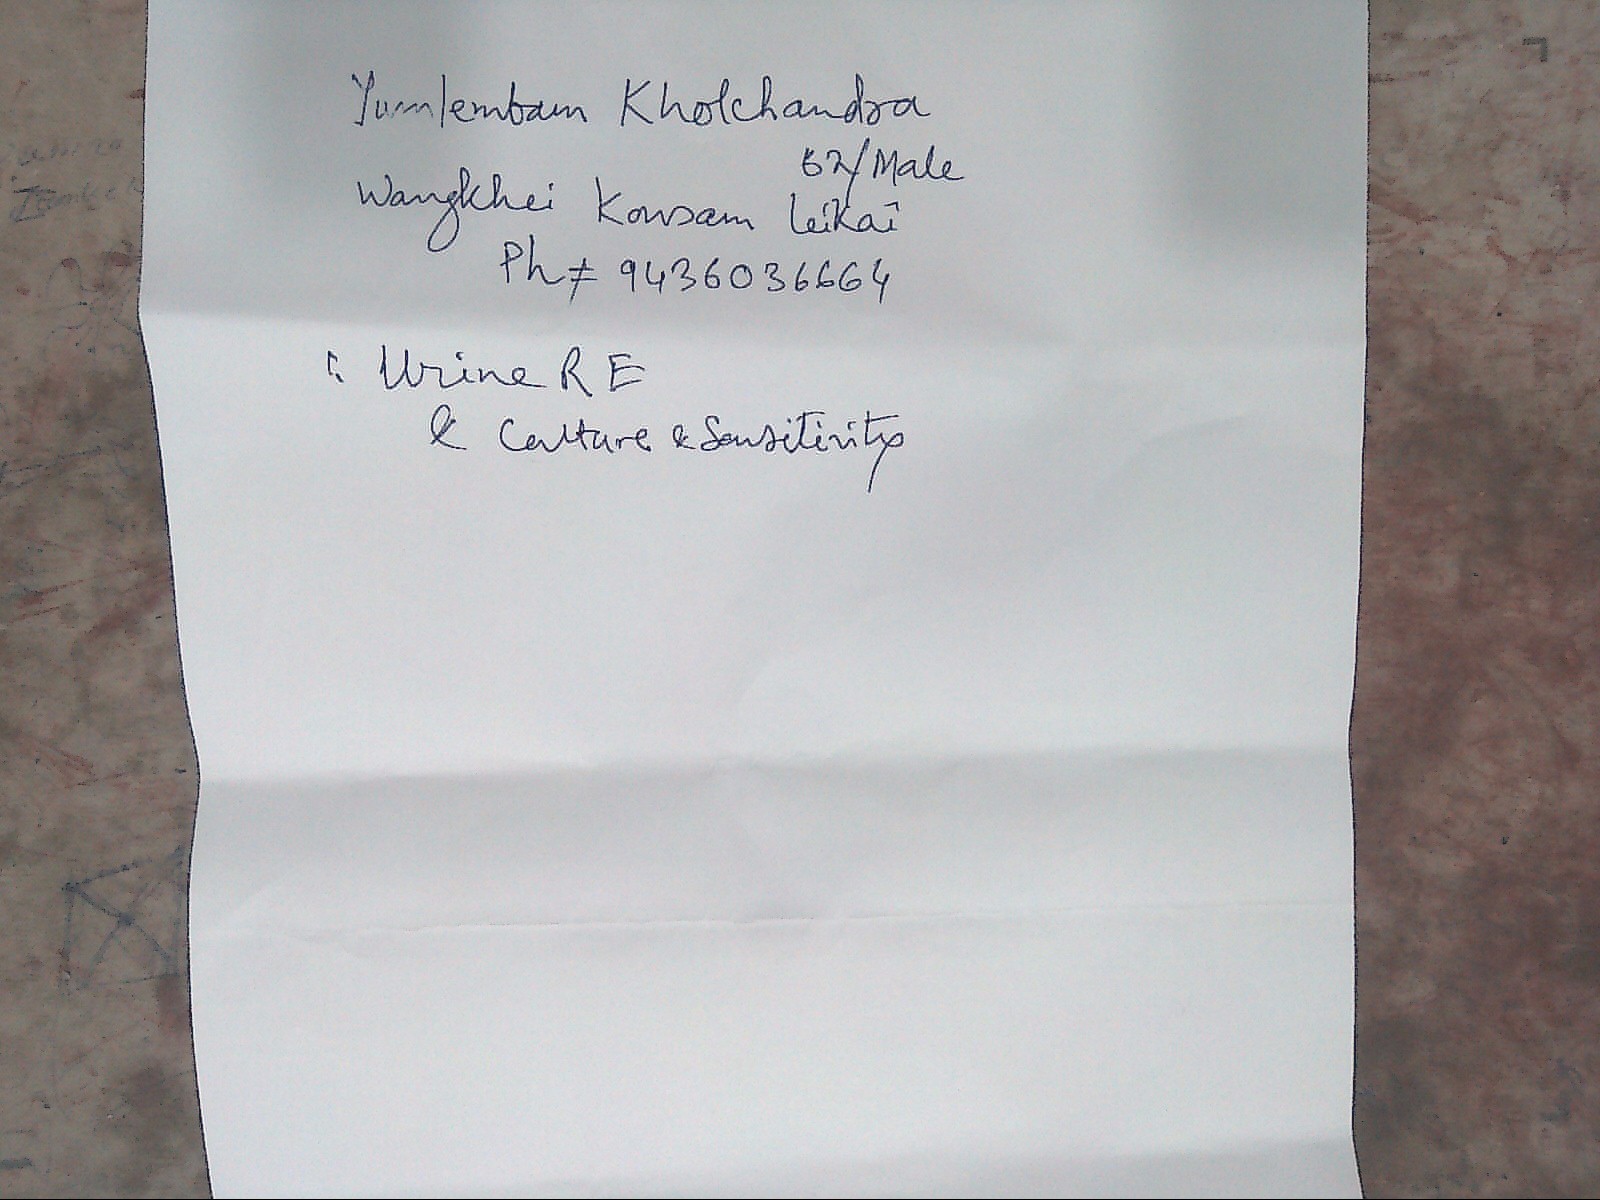 Yumlembam Kholchandra
62/Male
Wangkhei Konsam Leikai
Ph≠ 9436036664
: Urine R E
& Culture & Sensitivity